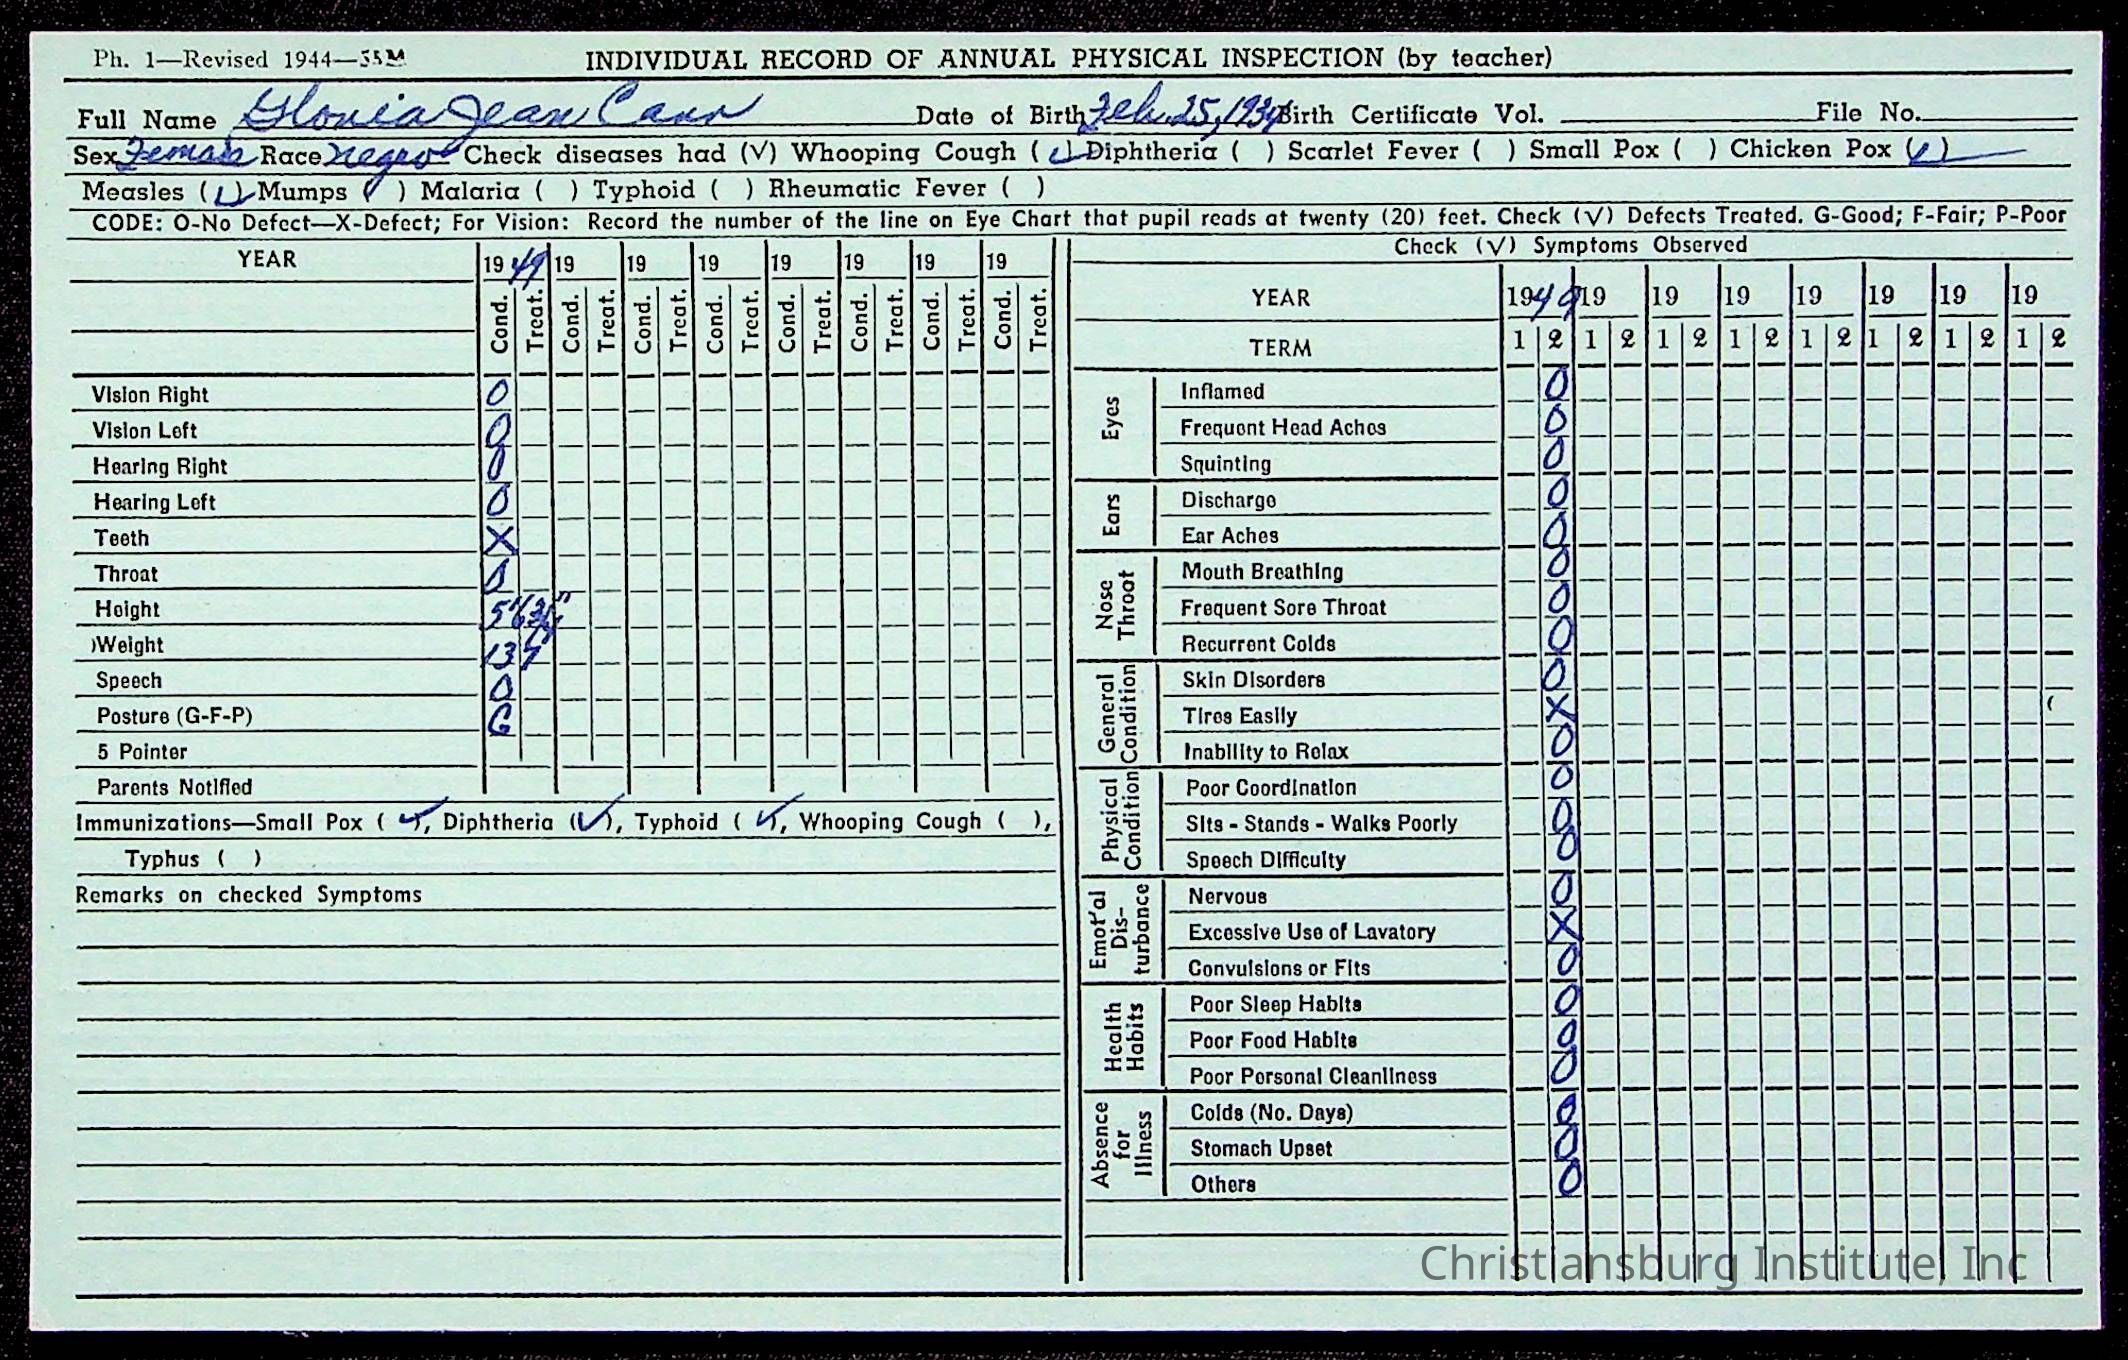 Ph. 1—Revised 1944—55M
INDIVIDUAL RECORD OF ANNUAL PHYSICAL INSPECTION (by teacher)
Full Name Gloria Jean Carr Date of Birth Feb. 25, 1934 Birth Certificate Vol. File No.
Sex Female Race Negro Check diseases had (√) Whooping Cough (√) Diphtheria ( ) Scarlet Fever ( ) Small Pox ( ) Chicken Pox (√)
Measles (√) Mumps ( ) Malaria ( ) Typhoid ( ) Rheumatic Fever ( )
CODE: O-No Defect—X-Defect; For Vision: Record the number of the line on Eye Chart that pupil reads at twenty (20) feet. Check (√) Defects Treated. G-Good; F-Fair; P-Poor
YEAR 1949 19 19 19 19 19 19 19
Cond. Treat. Cond. Treat. Cond. Treat. Cond. Treat. Cond. Treat. Cond. Treat. Cond. Treat. Cond. Treat.
Vision Right O
Vision Left O
Hearing Right O
Hearing Left O
Teeth X
Throat O
Height 5'6
Weight 137
Speech O
Posture (G-F-P) G
5 Pointer
Parents Notified
Immunizations—Small Pox (√), Diphtheria (√), Typhoid (√), Whooping Cough ( ),
Typhus ( )
Remarks on checked Symptoms
Check (√) Symptoms Observed
YEAR 1949 19 19 19 19 19 19 19
TERM 1 2 1 2 1 2 1 2 1 2 1 2 1 2 1 2
Eyes
Inflamed O
Frequent Head Aches O
Squinting O
Ears
Discharge O
Ear Aches O
Nose Throat
Mouth Breathing O
Frequent Sore Throat O
Recurrent Colds O
General Condition
Skin Disorders O
Tires Easily X
Inability to Relax O
Physical Condition
Poor Coordination O
Sits - Stands - Walks Poorly O
Speech Difficulty O
Emot'al Dis-turbance
Nervous O
Excessive Use of Lavatory X
Convulsions or Fits O
Health Habits
Poor Sleep Habits O
Poor Food Habits O
Poor Personal Cleanliness O
Absence for Illness
Colds (No. Days) O
Stomach Upset O
Others O
Christiansburg Institute, Inc